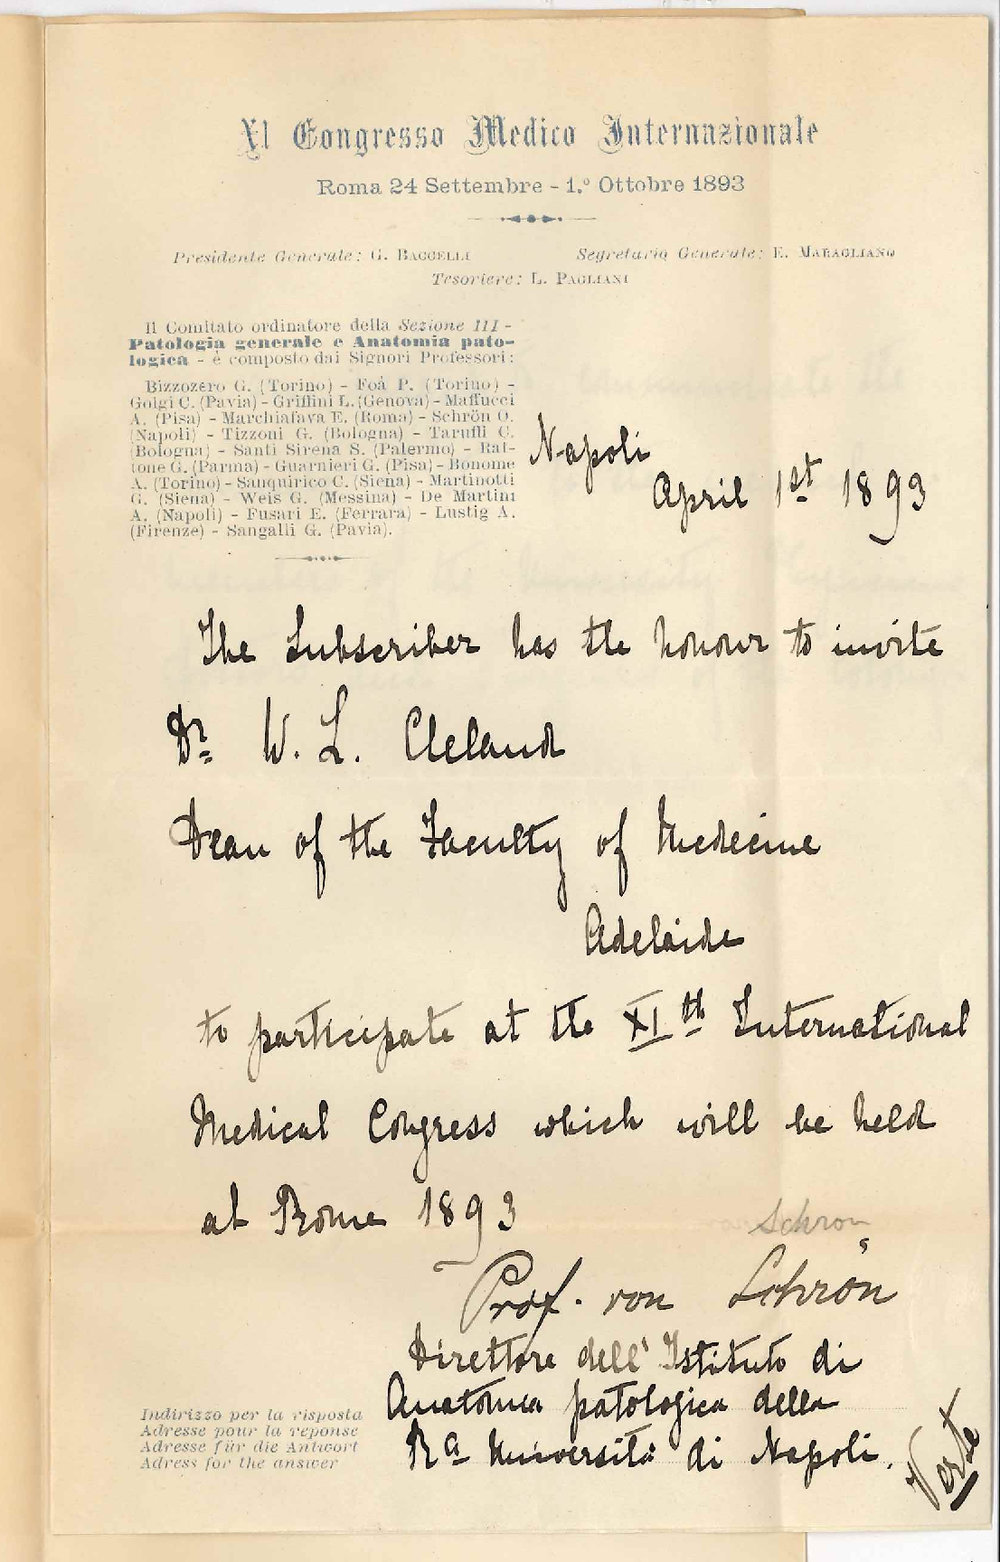 XI Congresso Medico Internazionale
Roma 24 Settembre - 1.° Ottobre 1893
Presidente Generale: G. BACCELLI
Segretario Generale: E. MARAGLIANO
Tesoriere: L. PAGLIANI
Il Comitato ordinatore della Sezione III -
Patologia generale e Anatomia pato-
logica - è composto dai Signori Professori:
Bizzozero G. (Torino) - Foà P. (Torino) -
Golgi C. (Pavia) - Griffini L. (Genova) - Maffucci
A. (Pisa) - Marchiafava E. (Roma) - Schrön O.
(Napoli) - Tizzoni G. (Bologna) - Taruffi C.
(Bologna) - Santi Sirena S. (Palermo) - Rat-
tone G. (Parma) - Guarnieri G. (Pisa) - Bonome
A. (Torino) - Sanquirico C. (Siena) - Martinotti
G. (Siena) - Weis G. (Messina) - De Martini
A. (Napoli) - Fusari E. (Ferrara) - Lustig A.
(Firenze) - Sangalli G. (Pavia).
Napoli
April 1st 1893
The Subscriber has the honour to invite
Dr W. L. Cleland
Dean of the Faculty of Medecine
Adelaide
to participate at the XIth International
Medical Congress which will be held
at Rome 1893
Schron
Prof. von Schrön
Direttore dell' Istituto di
Anatomia patologica della
Ra Università di Napoli.
Indirizzo per la risposta
Adresse pour la réponse
Adresse für die Antwort
Adress for the answer
Verte